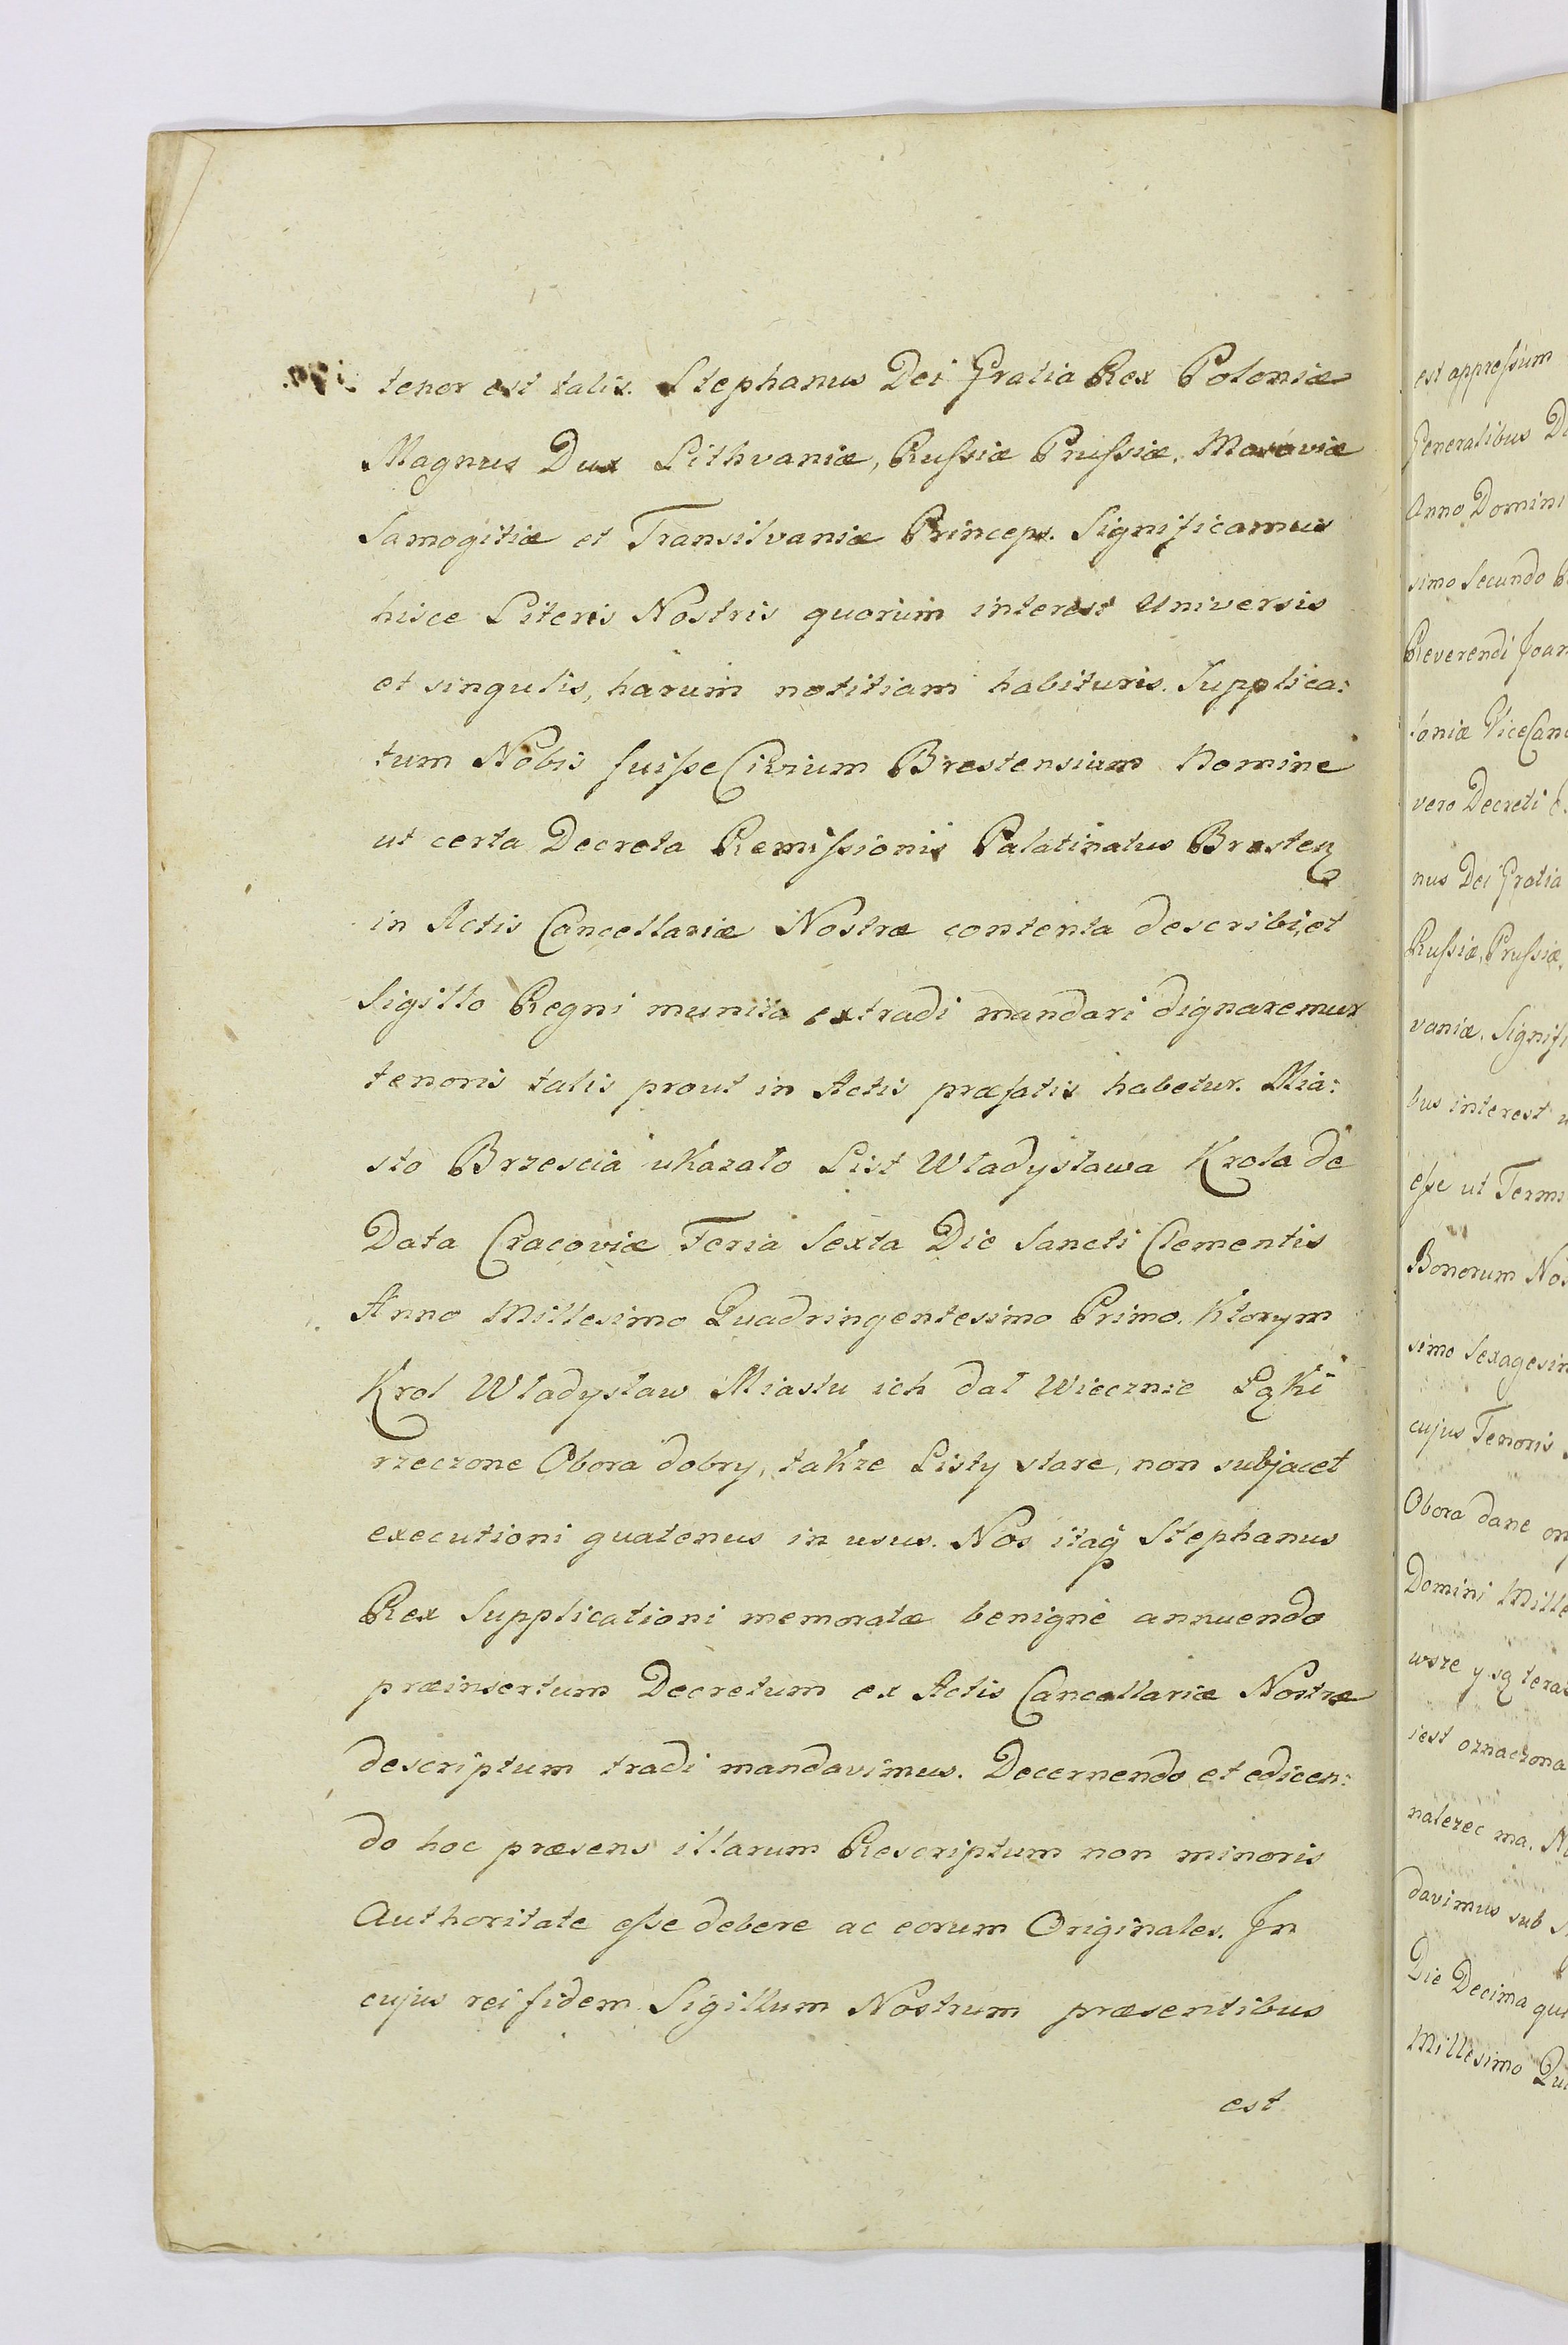 tenor est talis. Stephanus Dei Gratia Rex Poloniæ
Magnus Dux Lithvaniæ, Rufsiæ Prufsiæ, Masoviæ
Samogitiæ et Transilvaniæ Princeps. Significamus
hisce Literis Nostris quorum interest Universis
et singulis, harum notitiam habituris. Supplica:
tum Nobis fuifse Civium Brestensium Nomine
ut certa Decreta Remifsionis Palatinatus Bresten
in Actis Cancellariæ Nostræ contenta describi, et
Sigillo Regni munita extradi mandari dignaremur
tenoris talis prout in Actis præfatis habetur. Mia:
sto Brzescia ukazało List Władysława Krola de
Data Cracoviæ Feria Sexta Die Sancti Clementis
Anno Millesimo Quadringentesimo Primo. Ktorym
Krol Władysław Miastu ich dał Wiecznie Łąki
rzeczone Obora dobry, takze Listy stare, non subjacet
executioni quatenus in usus. Nos itaq Stephanus
Rex Supplicationi memoratæ benignè annuendo
præinsertum Decretum ex Actis Cancellariæ Nostræ
descriptum tradi mandavimus. Decernendo et edicen:
do hoc præsens illarum Rescriptum non minoris
Authoritate efse debere ac eorum Originales. In
cujus rei fidem Sigillum Nostrum præsentibus
est
est apprefsum
Generalibus
Anno Domini
simo Secundo
Reverendi
vero Decreti
nus Dei Gratia
Rufsiæ, Prufsiæ,
vaniæ.
bus interest
efse ut
Bonorum
simo
cujus Tenoris
Obora dane
Domini
wsze y są
iest oznaczona
nalezec ma.
davimus sub
Die Decima
Millesimo